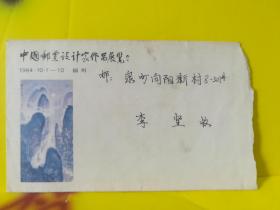 中国邮票设计家作品展览
1984·10·1—10 福州
邮：泉州向阳新村8-201#
李 坚 收